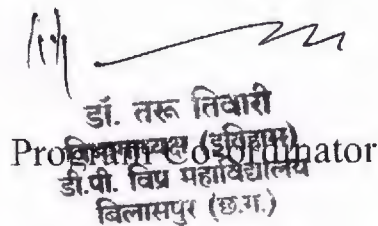 डॉ. तरू तिवारी
विभागाध्यक्ष (इतिहास)
Program Co-ordinator
डी.पी. विप्र महाविद्यालय
बिलासपुर (छ.ग.)